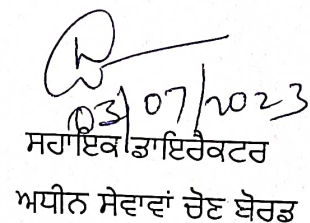 03/07/2023
ਸਹਾਇਕ ਡਾਇਰੈਕਟਰ
ਅਧੀਨ ਸੇਵਾਵਾਂ ਚੋਣ ਬੋਰਡ